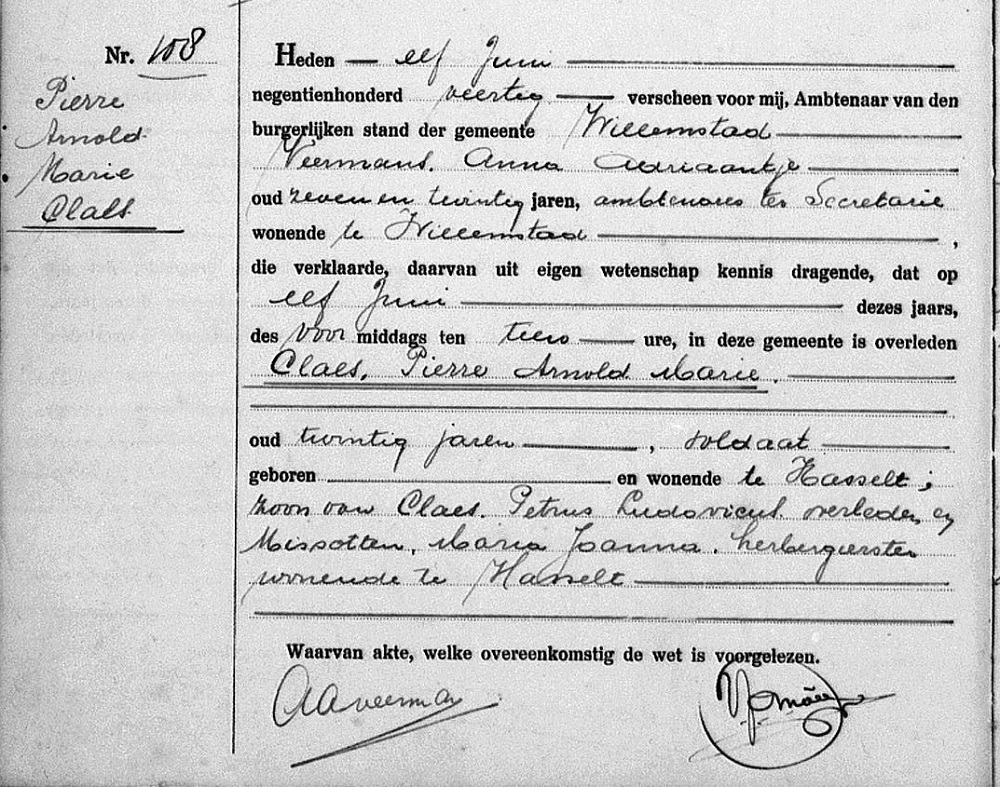 Nr. 108
Pierre
Arnold
Marie
Claes
Heden elf Juni
negentienhonderd veertig verscheen voor mij, Ambtenaar van den
burgerlijken stand der gemeente Willemstad
Veermans, Anna Adriaantje
oud zeven en twintig jaren, ambtenares ter Secretarie
wonende te Willemstad ,
die verklaarde, daarvan uit eigen wetenschap kennis dragende, dat op
elf Juni dezes jaars,
des voor middags ten ure, in deze gemeente is overleden
Claes, Pierre Arnold Marie.
oud twintig jaren , soldaat
geboren en wonende te Hasselt;
zoon van Claes, Petrus Ludovicus overleden en
Missotten, Maria Joanna, herbergierster
wonende te Hasselt
Waarvan akte, welke overeenkomstig de wet is voorgelezen.
AAveerman